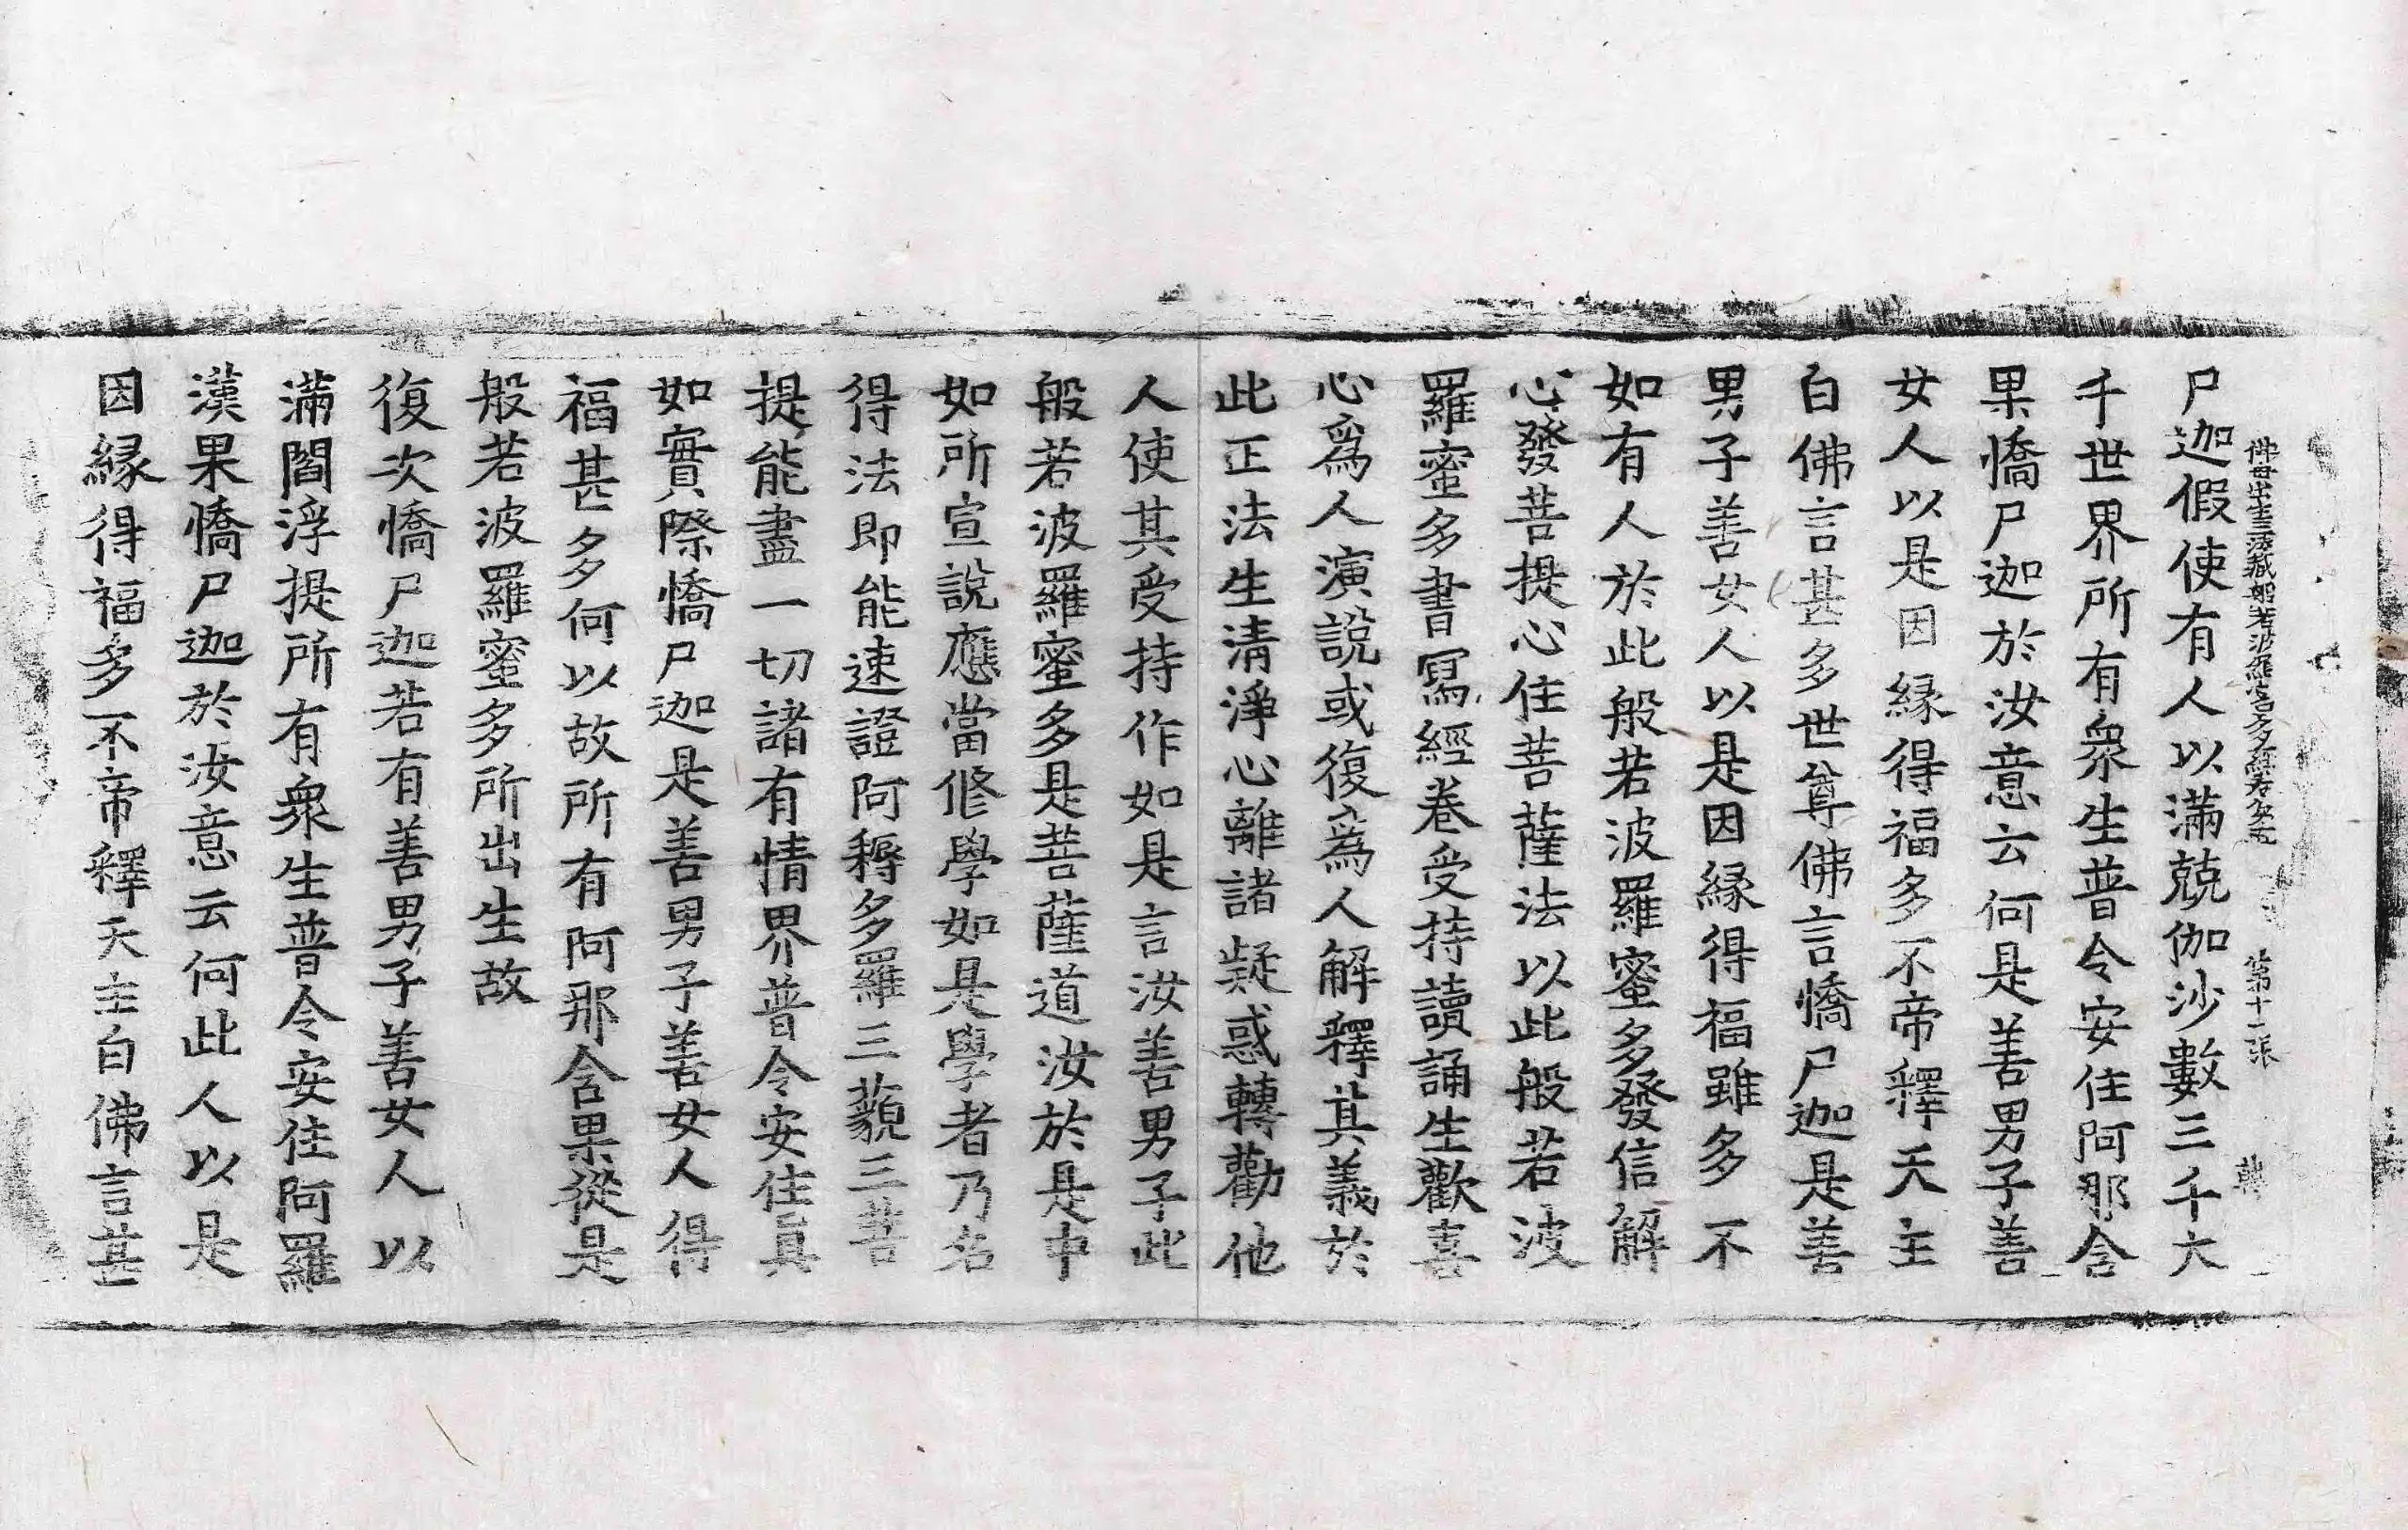 佛母出生三法藏般若波羅蜜多經卷第五 第十二張
尸迦假使有人以滿兢伽沙數三千大
千世界所有衆生普令安住阿那含
果憍尸迦於汝意云何是善男子善
女人以是因緣得福多不帝釋天主
白佛言甚多世尊佛言憍尸迦是善
男子善女人以是因緣得福雖多不
如有人於此般若波羅蜜多發信解
心發菩提心住菩薩法以此般若波
羅蜜多書寫經卷受持讀誦生歡喜
心爲人演說或復爲人解釋其義於
此正法生清淨心離諸疑惑轉勸他
人使其受持作如是言汝善男子此
般若波羅蜜多是菩薩道汝於是中
如所宣說應當修學如是學者乃名
得法即能速證阿耨多羅三藐三菩
提能盡一切諸有情界普令安住真
如實際憍尸迦是善男子善女人得
福甚多何以故所有阿那含果從是
般若波羅蜜多所出生故
復次憍尸迦若有善男子善女人以
滿閻浮提所有衆生普令安住阿羅
漢果憍尸迦於汝意云何此人以是
因緣得福多不帝釋天主白佛言甚